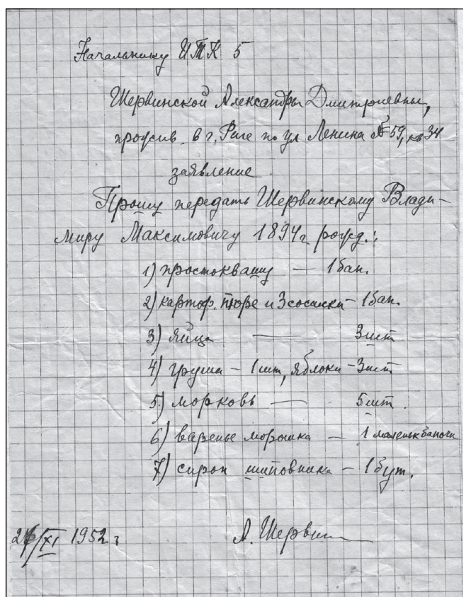 Начальнику ИТК 5
Шервинской Александры Дмитриевны,
прожив. в г. Риге по ул Ленина № 59, кв 34
заявление
Прошу передать Шервинскому Влади-
миру Максимовичу 1894 г рожд.:
1) простоквашу — 1 бан.
2) картоф. пюре и 3 сосиски — 1 бан.
3) яйца — 3 шт
4) груша — 1 шт, яблоки — 3 шт
5) морковь — 5 шт.
6) варенье морошка — 1 маленьк баночк
7) сироп шиповника — 1 бут.
/XI 1952 г
А. Шервин